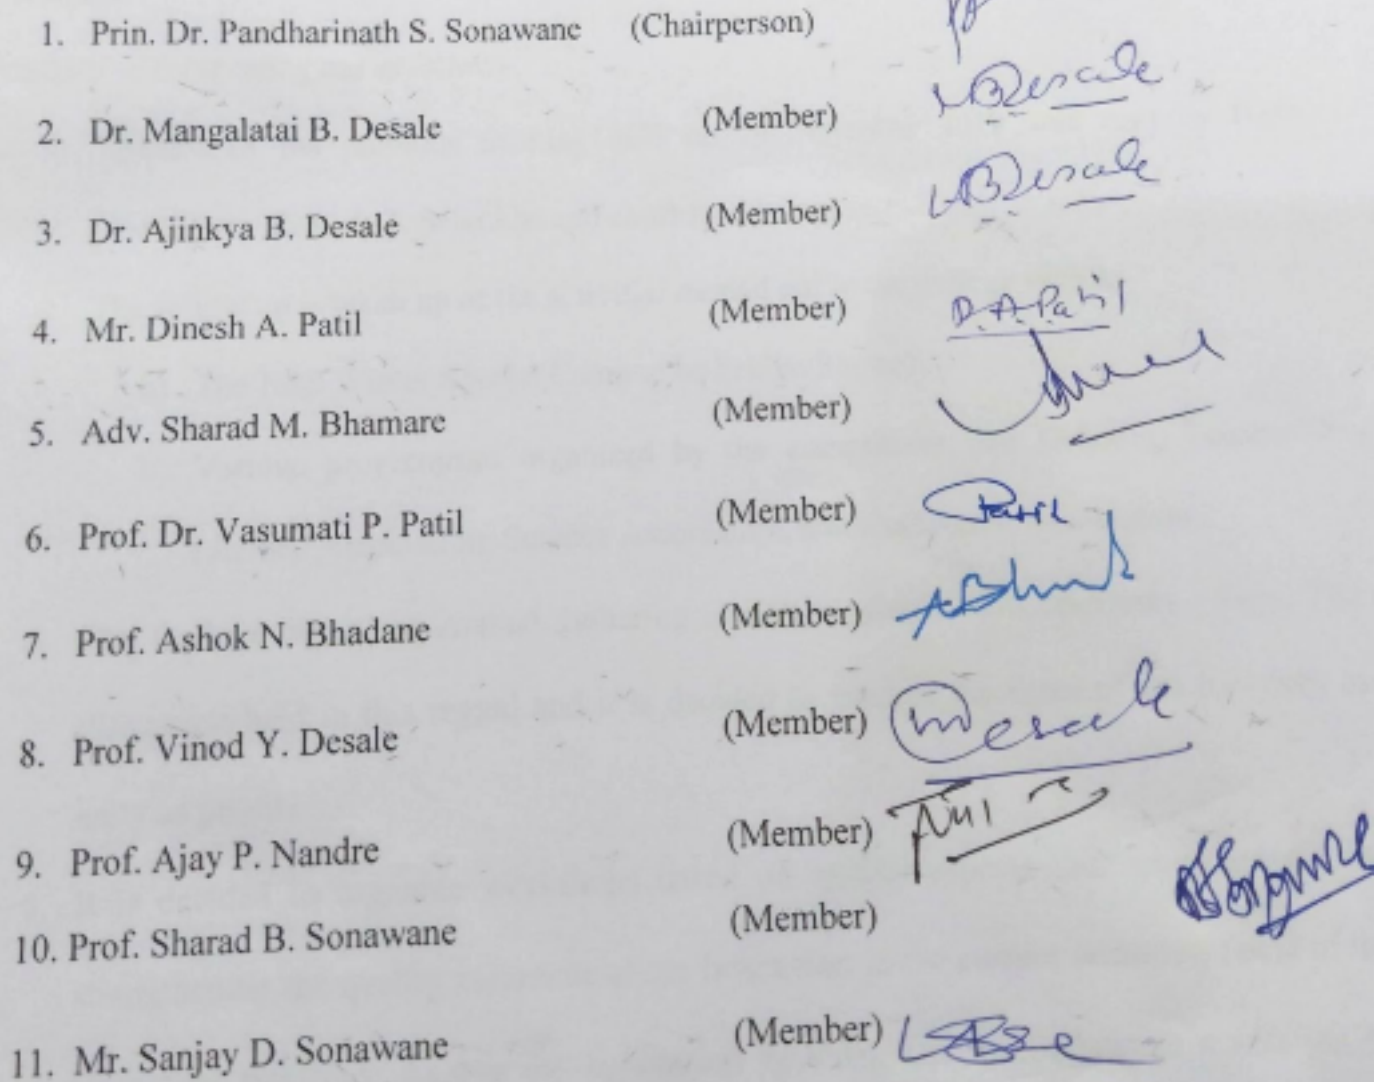 1. Prin. Dr. Pandharinath S. Sonawane (Chairperson)
2. Dr. Mangalatai B. Desale (Member) Desale
3. Dr. Ajinkya B. Desale (Member) Desale
4. Mr. Dinesh A. Patil (Member) D. A. Patil
5. Adv. Sharad M. Bhamare (Member)
6. Prof. Dr. Vasumati P. Patil (Member) Patil
7. Prof. Ashok N. Bhadane (Member)
8. Prof. Vinod Y. Desale (Member) Desale
9. Prof. Ajay P. Nandre (Member)
10. Prof. Sharad B. Sonawane (Member)
11. Mr. Sanjay D. Sonawane (Member)